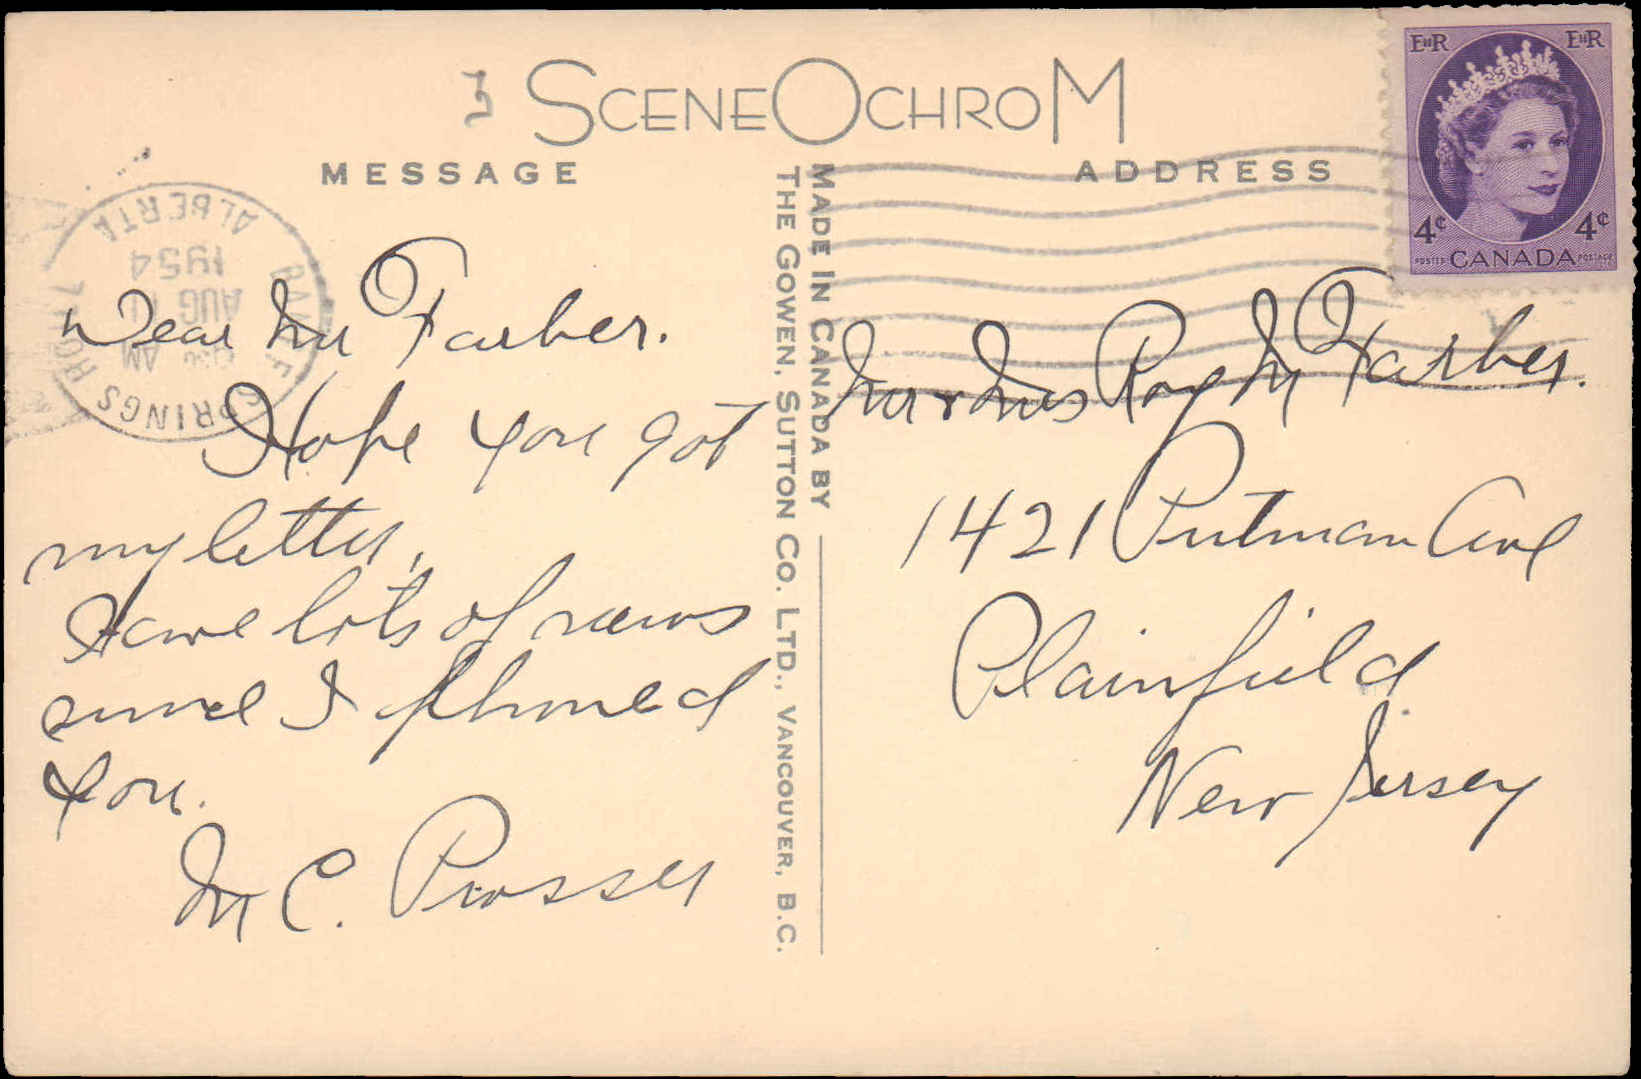 SCENEOCHROM
MESSAGE
ADDRESS
BANFF SPRINGS HOTEL
ALBERTA
AM
AUG
1954
Dear Mr Farber.
Hope you got
my letter,
Have lots of news
since I phoned
you.
M C. Prosser
MADE IN CANADA BY
THE GOWEN, SUTTON CO. LTD., VANCOUVER, B.C.
EIIR EIIR
4¢ 4¢
POSTES CANADA POSTAGE
Mr & Mrs Roy M Farber.
1421 Putman Ave
Plainfield
New Jersey